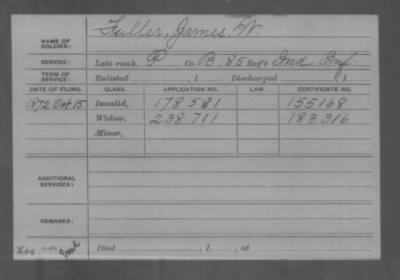 NAME OF SOLDIER: Fuller, James W.
SERVICE: Late rank, P Co. B, 85 Reg't Ind Inf.
TERM OF SERVICE: Enlisted , 1 Discharged , 1
DATE OF FILING. CLASS. APPLICATION NO. LAW. CERTIFICATE NO.
1872 Oct 15 Invalid, 178 581 155168
Widow, 238 711 183 316
Minor,
ADDITIONAL SERVICES:
REMARKS:
Died , 1 , at